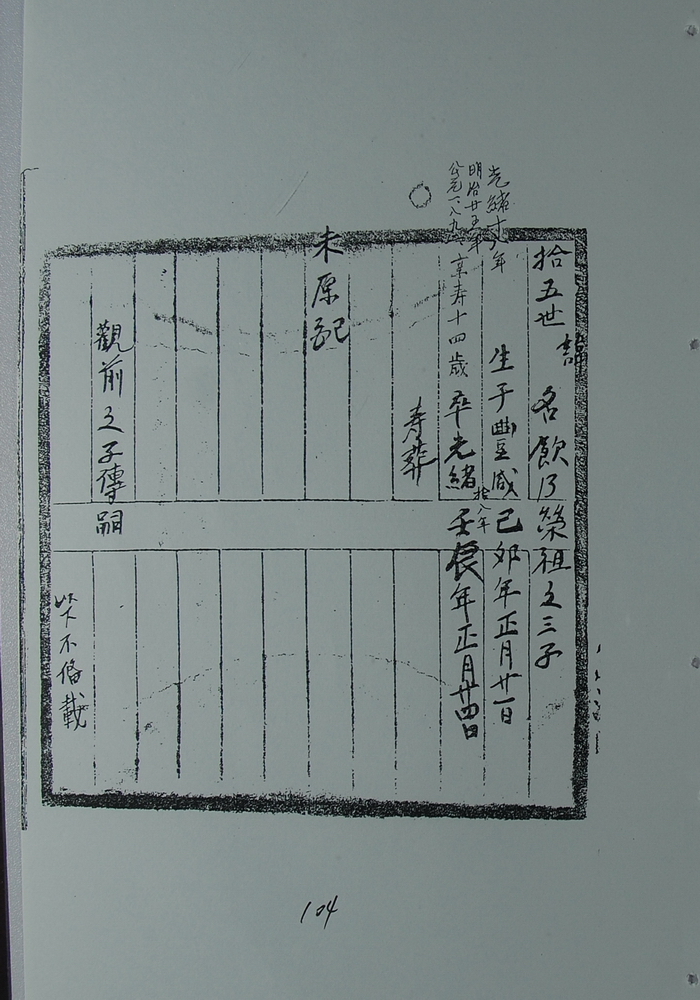 拾五世 諱 名飲乃榮祖之三子
光緒十八年
生于豊咸己卯年正月廿一日
明治廿五年
公元一八九
享寿十四歲 卒光緒拾八年壬辰年正月廿四日
寿葬
未原記
觀前之子傳嗣
以下不俻載
104